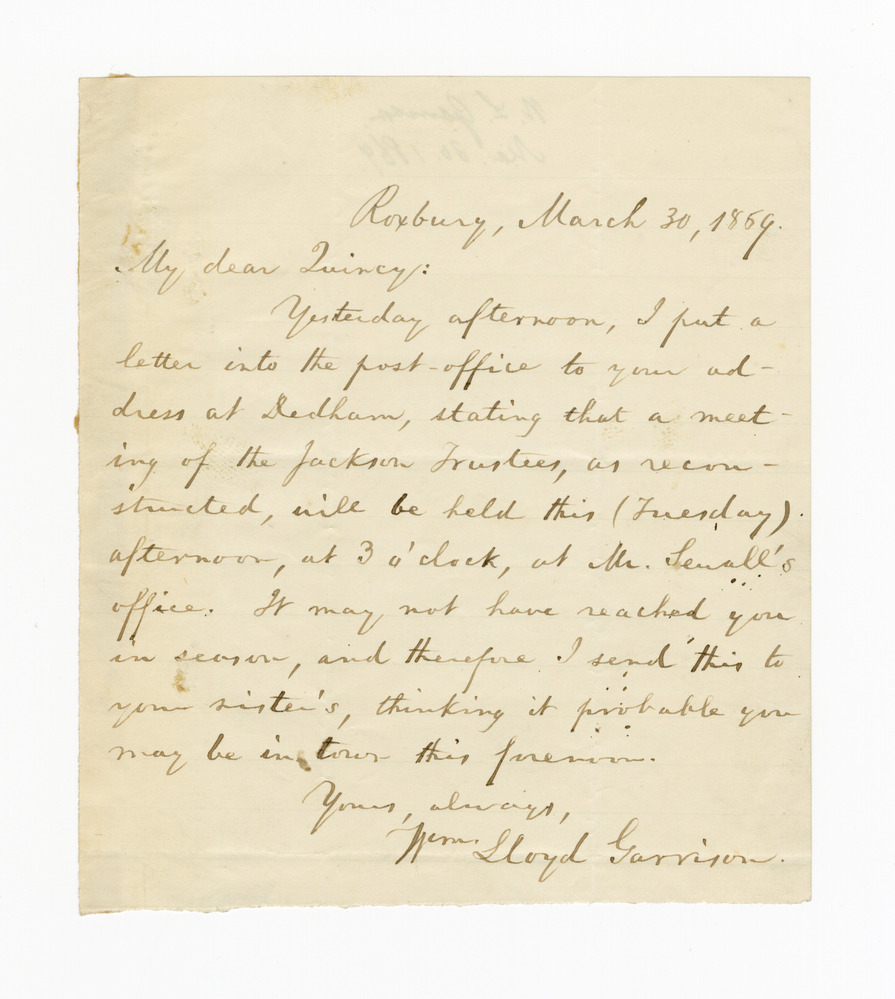 Roxbury, March 30, 1869.
My dear Quincy:
Yesterday afternoon, I put a
letter into the post-office to your ad-
dress at Dedham, stating that a meet-
ing of the Jackson Trustees, as recon-
structed, will be held this (Tuesday)
afternoon, at 3 o'clock, at Mr. Sewall's
office. It may not have reached you
in season, and therefore I send this to
your sister's, thinking it probable you
may be in town this forenoon.
Yours, always,
Wm. Lloyd Garrison.